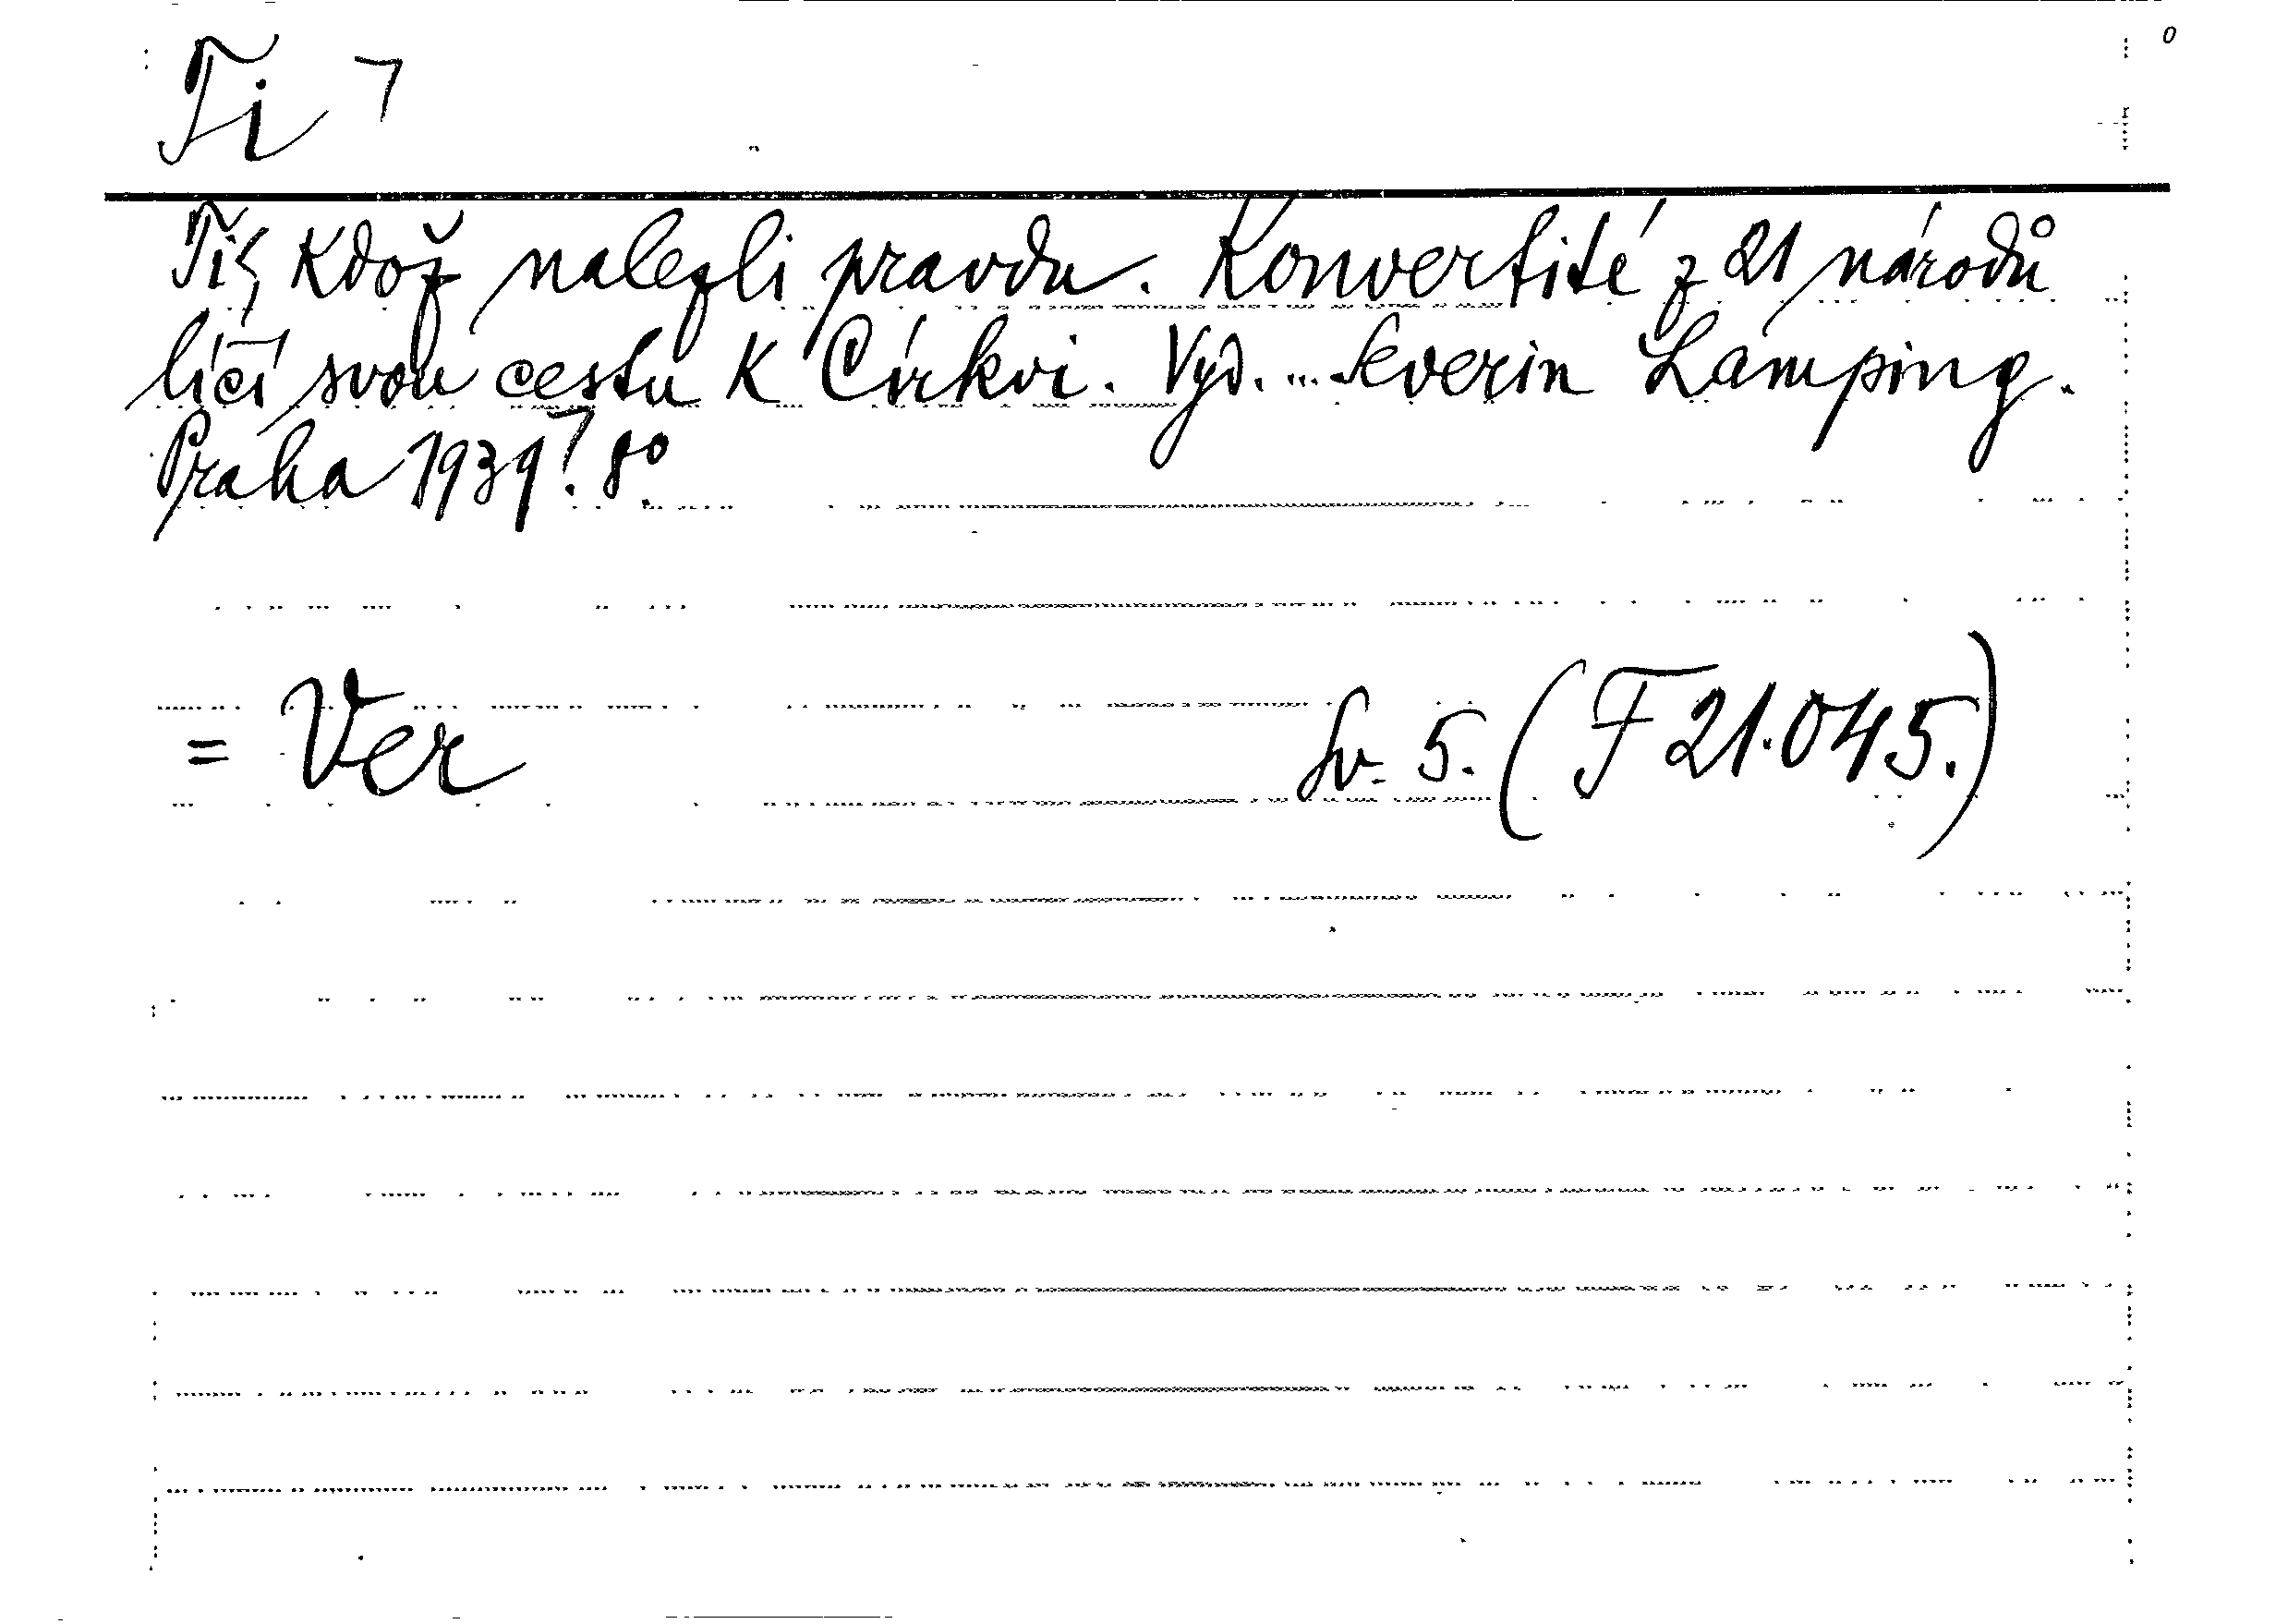 Ti ⌝
Ti, Kdož nalezli pravdu. Konvertité z 21 národů
líčí svou cestu k Církvi. Vyd. ... Severin Lamping.
Praha 1939⌝. 8o.
= Ver Sv. 5. (F 21.045.)